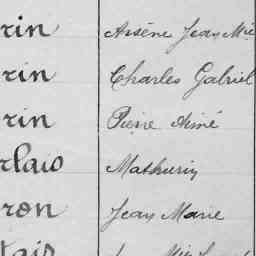 rin Arsène Jean Mie
rin Charles Gabriel
rin Pierre Aimé
rlais Mathurin
ron Jean Marie
tais